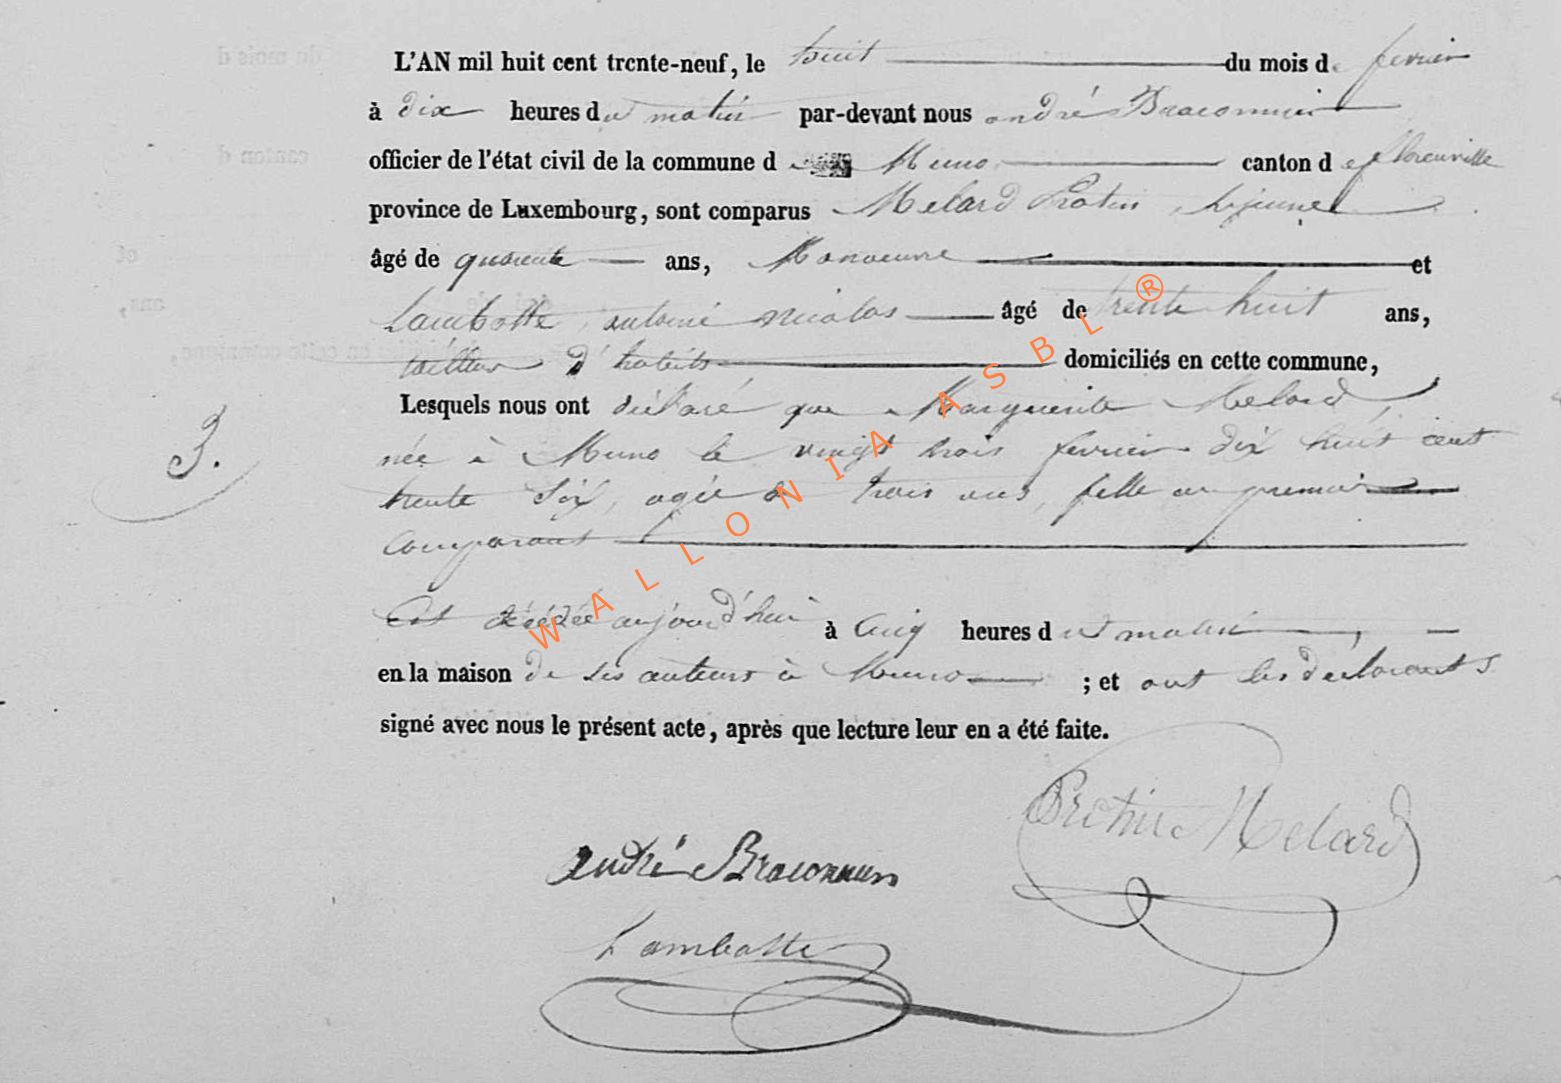 L'AN mil huit cent trente-neuf, le huit du mois de fevrier
à dix heures du matin par-devant nous andré Braconnier
officier de l'état civil de la commune d Muno canton de florenville
province de Luxembourg, sont comparus Melard Protin, lejeune
âgé de quarente ans, Manoeuvre et
Lambotte, antoine nicolas âgé de trente huit ans,
tailleur d'habits domiciliés en cette commune,
Lesquels nous ont déclaré que Marguerite Melard,
3.
née à Muno le vingt trois fevrier dix huit cent
trente six, agée de trois ans, fille au premier
comparant
Est décédée aujourd'hui à cinq heures du matin
en la maison de ses auteurs à Muno ; et ont les déclarants
signé avec nous le présent acte, après que lecture leur en a été faite.
Protin Melard
andré Braconnier
Lambotte
WALLONIA ASBL ®